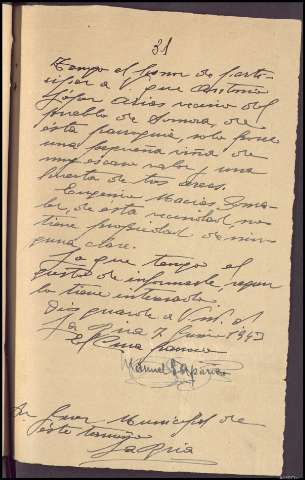 31
Tengo el honor de parti-
cipar a V. que Antonio
López Arias vecino del
pueblo de de
esta parroquia, solo posee
una pequeña viña de
muy escaso valor y una
huerta de tres areas.
Eugenio Macías
de esta vecindad, no
tiene propiedad de nin-
guna clase.
Lo que tengo el
gusto de informarle, segun
lo tiene interesado.
Dios guarde a Vd. m. a.
La Rúa 7 Junio 1943
El Cura párroco
Manuel Aparicio
Sr. Juez Municipal de
éste termino
La Rúa